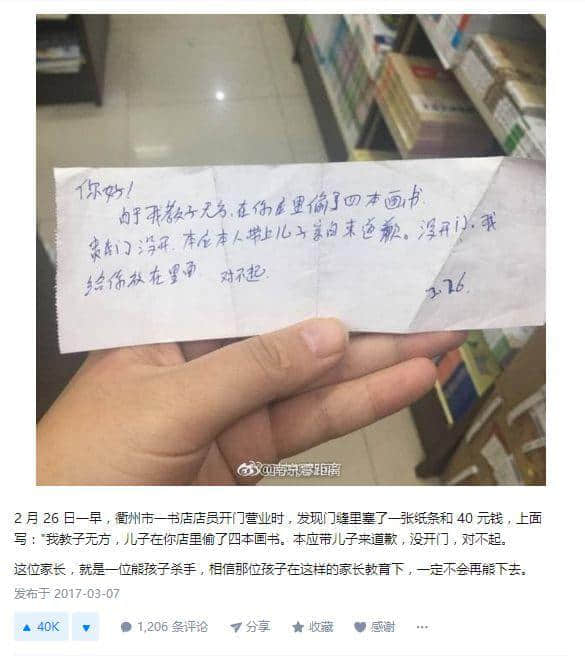 你好!
由于我教子无方.在你店里偷了四本画书.
贵门没开.本应本人带上儿子亲自来道歉。没开门.我
给你放在里面 对不起.
2.26.
@南京零距离
2 月 26 日一早，衢州市一书店店员开门营业时，发现门缝里塞了一张纸条和 40 元钱，上面
写："我教子无方，儿子在你店里偷了四本画书。本应带儿子来道歉，没开门，对不起。
这位家长，就是一位熊孩子杀手，相信那位孩子在这样的家长教育下，一定不会再熊下去。
发布于 2017-03-07
40K
1,206 条评论
分享
收藏
感谢